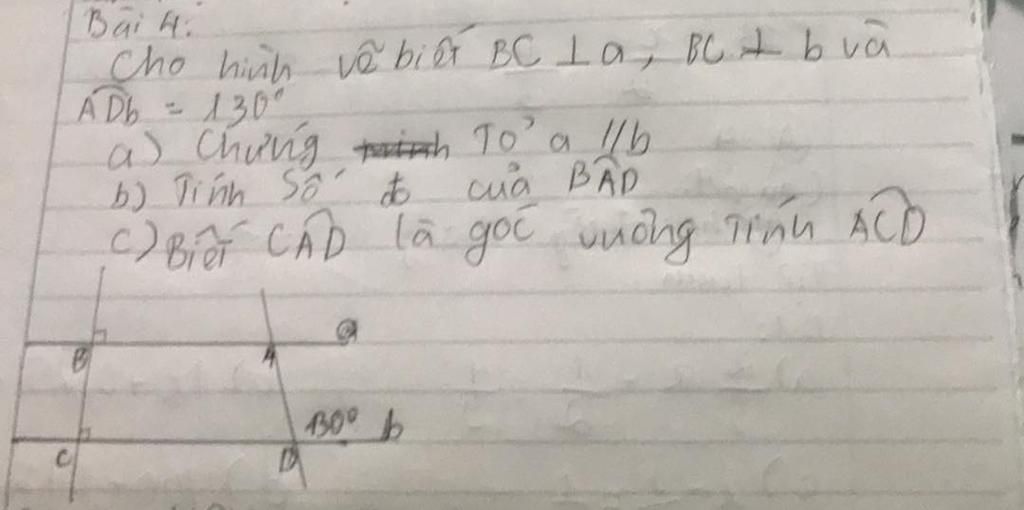 Bài 4:
Cho hình vẽ biết BC ⊥ a, BC ⊥ b và
ADb = 130°
a) Chứng Tỏ a // b
b) Tính Số đo của BAD
c) Biết CAD là góc vuông Tính ACD
a
B A
130° b
C D